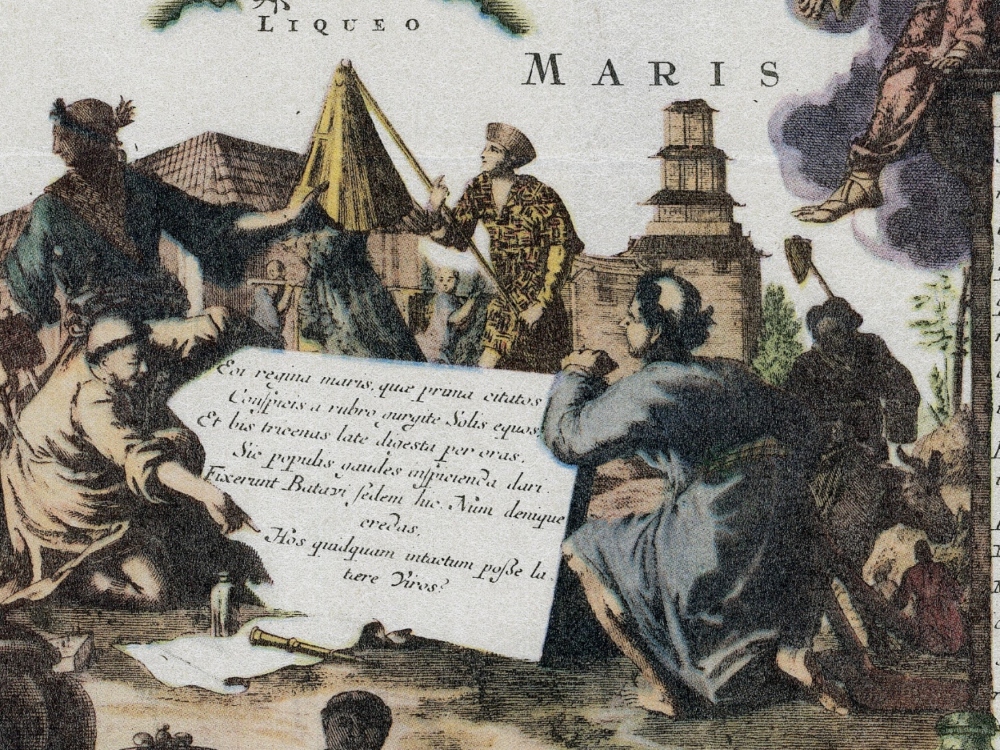 LIQUEO
MARIS
En regina maris, quæ prima citatos
Conſpicis a rubro gurgite Solis equos,
Et bis tricenas late digesta per oras,
Sic populis gaudes inſpicienda dari.
Fixerunt Batavi ſedem huc. Num denique
credas,
Hos quidquam intactum poſse la
tere Viros?